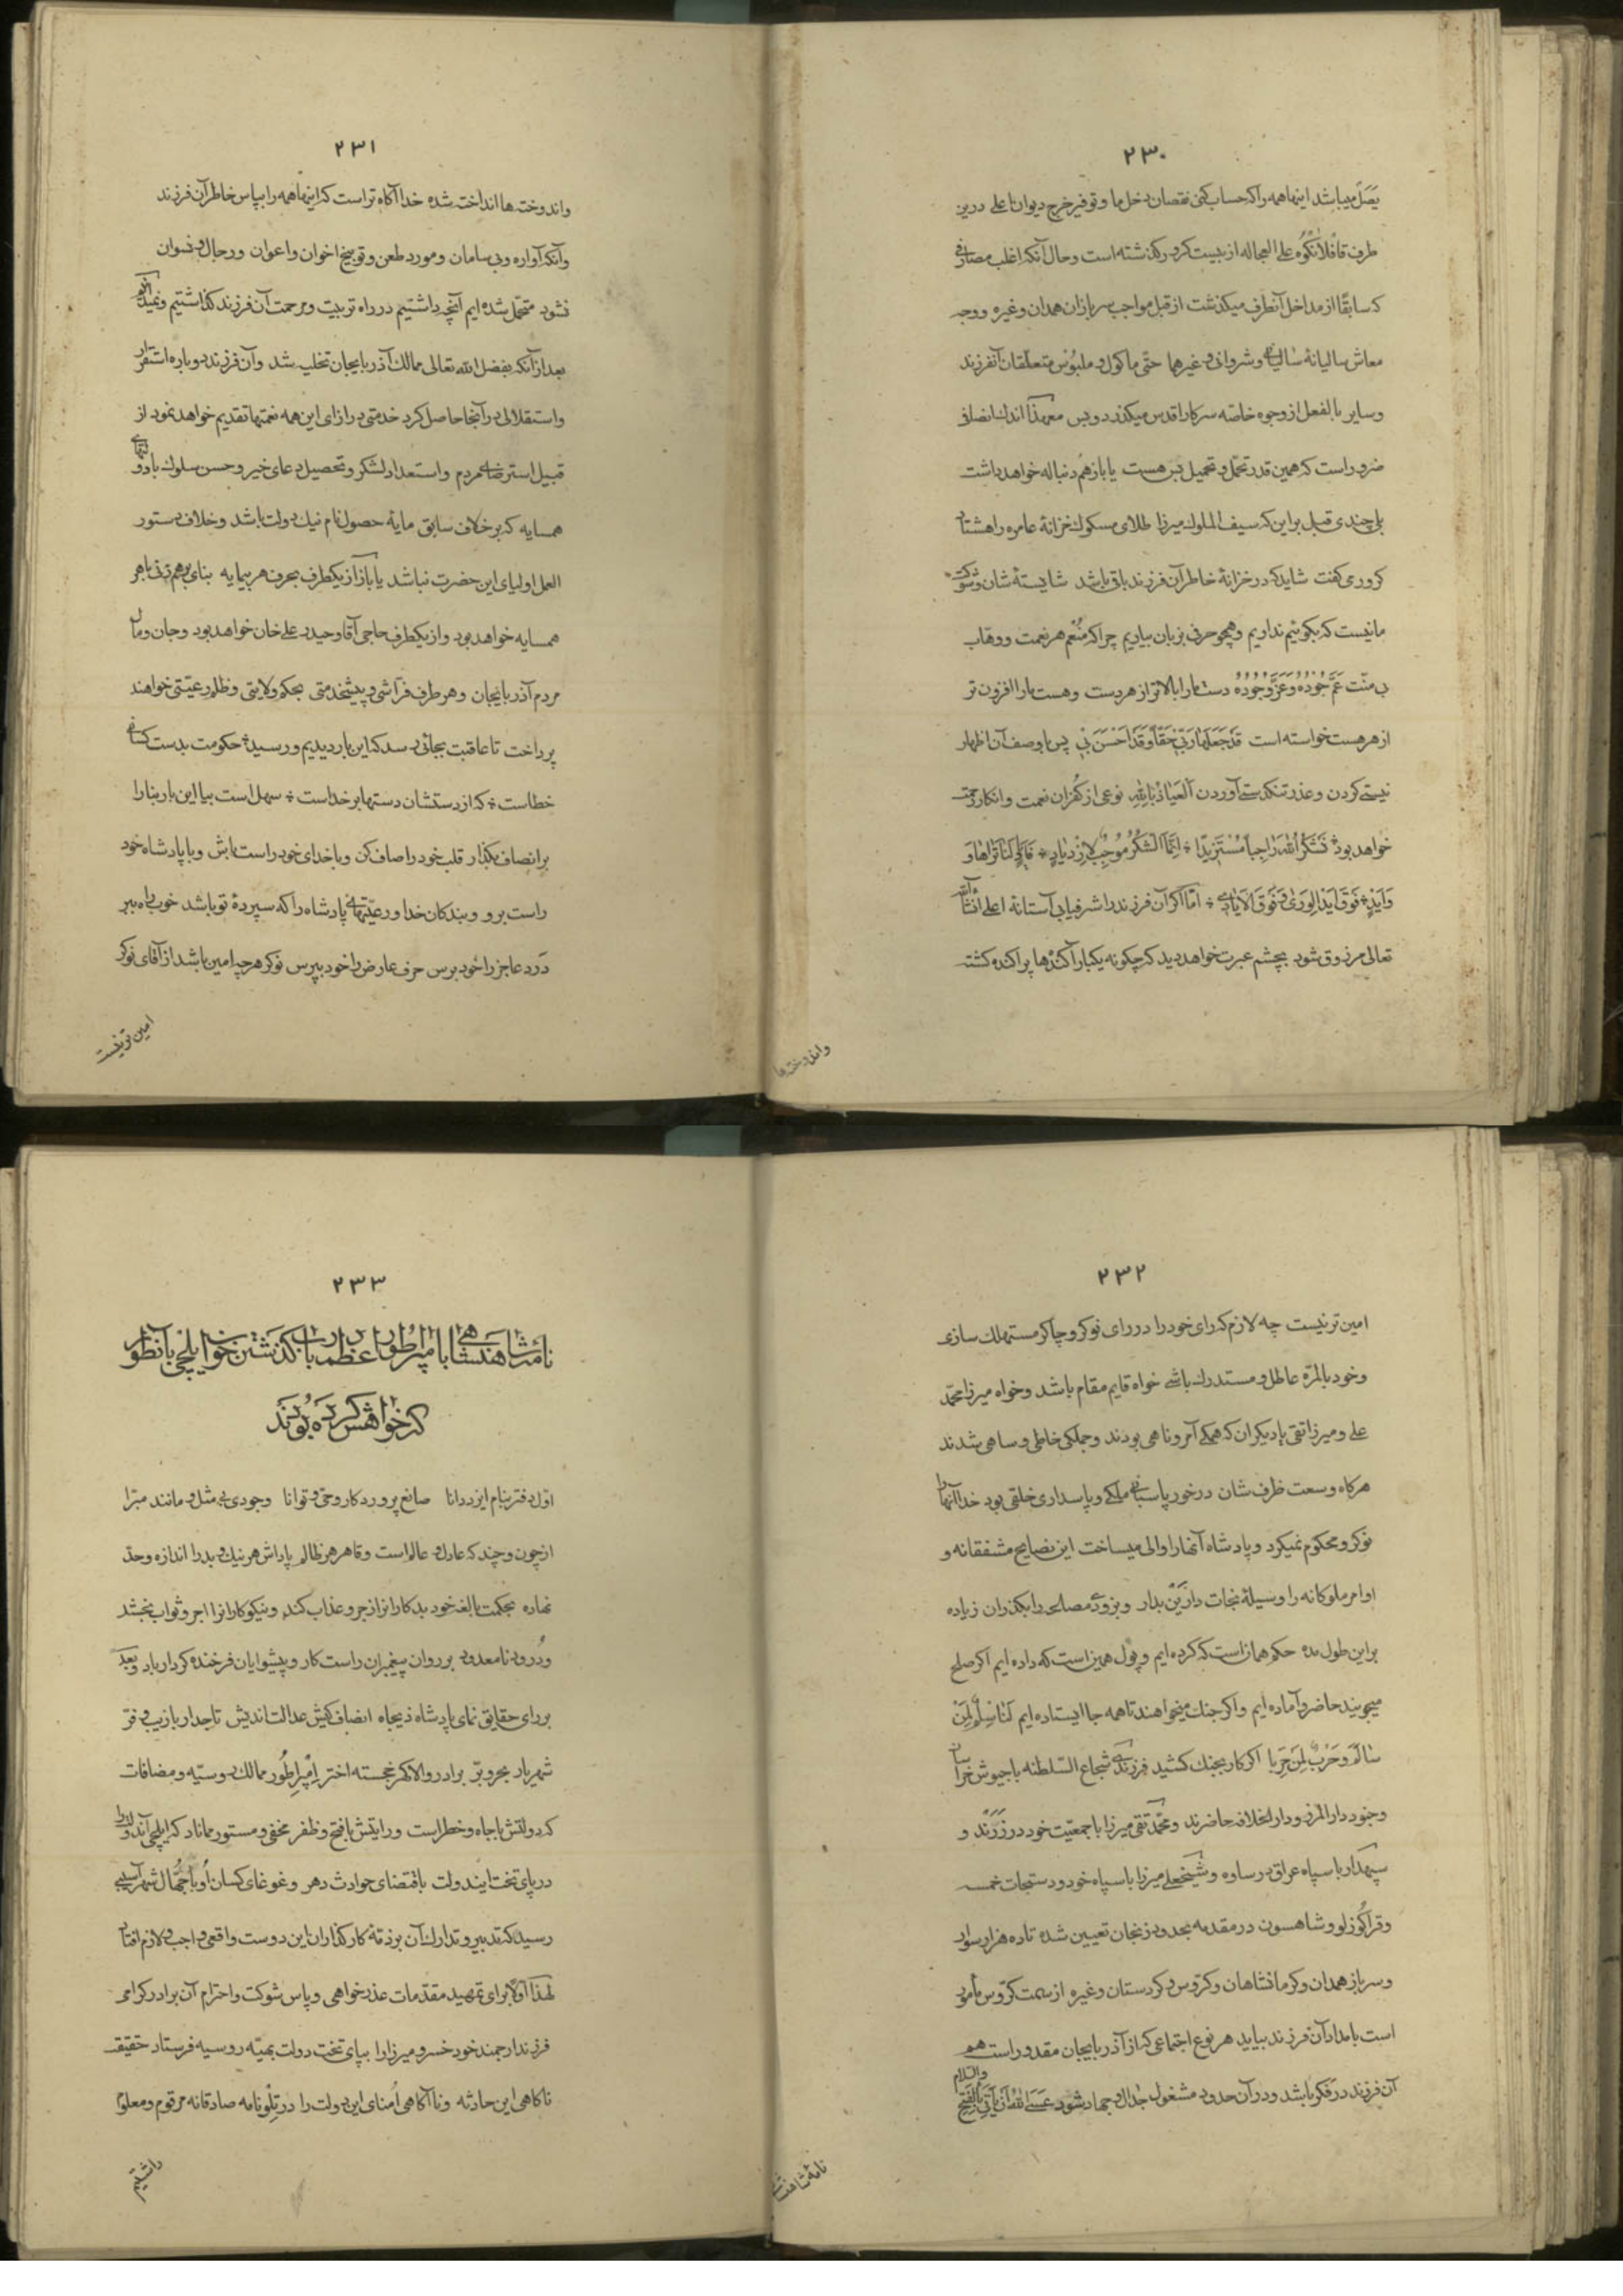 ۲۳۰
یصل میباشد اینها همه را که حساب کنی نقصان دخل ما و توفیر خرج دیوان اعلی درین
طرف قافلانکوه علی العجاله از بیست کرور گذشته است و حال آنکه اغلب مصارفی
که سابقاً از مداخل آنطرف میکذشت از قبل مواجب سربازان همدان وغیره و وجه
معاش سالیانهٔ شالیانی و شروانی و غیرهما حتّی ماکول و ملبوس متعلّقان آنفرزند
وسایر بالفعل از وجوه خاصّه سرکار اقدس میکذرد و بس معهذا اندک انصافی
ضرور است که همین قدر تحمّل و تحمیل بس هست یا باز هم دنباله خواهد داشت
بلی چندی قبل براین که سیف الملوک میرزا طلای مسکوک خزانهٔ عامره را هشتاد
کرور می کفت شاید که در خزانهٔ خاطر آن فرزند باقی باشد شایستهٔ شان و شوکت
ما نیست که بکوئیم نداریم و همچو حرفی بزبان بیاریم چرا که مُنعِم هر نعمت و وهّاب
بی منّت عَمَّ جُودُهُ وَعَزَّ وُجُودُهُ دست ما را بالاتر از هر دست و هست ما را افزون تر
از هر هست خواسته است قَدْ جَعَلَهَا رَبِّی حَقّاً وَقَدْ اَحْسَنَ بِی پس با وصف آن اظهار
نیستی کردن و عذر تنکدستی آوردن اَلعَیاذُ بِاللّهِ نوعی از کُفران نعمت و انکار رحمت
خواهد بود فَنَشْكُرُ اللّهَ رَاجِیاً مُسْتَزِیداً * اِنَّمَا الشُّكْرُ مُوجِبٌ لِازْدِیادٍ *
وَاَیدٍ * فَوْقَ اَیْدِ الْوَرىٰ وَفَوْقَ الْاَیادِی * امّا اگر آن فرزند را شرفیابی آستانهٔ اعلی انشآءالله
تعالی مرزوق شود بچشم عبرت خواهد دید که چکونه یکبار آکندها پراکنده کشته
واندوخته‌ها
۲۳۱
واندوخته‌ها انداخته شده خدا آکاه تر است که اینها همه را بپاس خاطر آن فرزند
وآنکه آواره و بی سامان و مورد طعن و توبیخ اخوان و اعوان و رجال و نسوان
نشود متحمّل شده ایم آنچه داشتیم در راه تربیت و مرحمت آن فرزند کذاشتیم و نمیدانیم
بعد از آنکه بفضل الله تعالی ممالک آذربایجان تخلیه شد و آن فرزند دوباره استقرار
واستقلالی در آنجا حاصل کرد خدمتی در ازای این همه نعمتها تقدیم خواهد نمود از
قبیل استرضای مردم و استعداد لشکر و تحصیل دعای خیر و حسن سلوک با دولتهای
همسایه که برخلاف سابق مایهٔ حصول نام نیک دولت باشد و خلاف دستور
العمل اولیای این حضرت نباشد یا باز از یکطرف بحرف هر بیمایه بنای برهم زنی با هر
همسایه خواهد بود و از یکطرف حاجی آقا و حیدر علی خان خواهد بود و جان و مال
مردم آذربایجان و هر طرف فرّاشی و پیشخدمتی بحکم ولایتی و ظلم رعیّتی خواهند
پرداخت تا عاقبت بجائی رسد که این بار دیدیم و رسید * حکومت بدست کسانی
خطاست * که از دستشان دستها بر خداست * سهل است بیا این بار بنا را
برانصاف بکذار قلب خود را صاف کن و با خدای خود راست باش و با پادشاه خود
راست برو و بندکان خدا و رعیّتهای پادشاه را که سپردهٔ تو باشد خوب راه ببر
درد عاجز را خود برس حرف عارض را خود بپرس نوکر هر چه امین باشد از آقای نوکر
امین تر نیست
۲۳۲
امین تر نیست چه لازم که رای خود را در رای نوکر و چاکر مستهلک سازی
وخود بالمرّة عاطل و مستدرک باشی خواه قایم مقام باشد و خواه میرزا محمّد
علی و میرزا تقی یا دیکران که همکی آمر و ناهی بودند و جملکی خاطی و ساهی شدند
هرکاه وسعت ظرف شان درخور پاسبانی ملکی و پاسداری خلقی بود خدا آنها را
نوکر و محکوم نمیکرد و پادشاه آنها را والی میساخت این نصایح مشفقانه و
اوامر ملوکانه را وسیلهٔ نجات دارَیْن بدار و بزودی مصالحه را بکذران زیاده
براین طول مده حکم همانست که کرده ایم و پول همین است که داده ایم اکر صلح
میجویند حاضر و آماده ایم و اکر جنک میخواهند تا همه جا ایستاده ایم لَنا سِلْمٌ لِمَنْ
سالَمَ وَحَرْبٌ لِمَن حَرِبَا اکر کار بجنک کشید فرزندی شجاع السّلطنه با جیوش خراسان
وجنود دارالمرز و دارالخلافه حاضرند و محمّد تقی میرزا با جمعیّت خود در زَرَند و
سپهدار با سپاه عراق در ساوه و شیخعلی میرزا با سپاه خود و دستجات خمسه
وقراکوزلو و شاهسون در مقدمه بحدود زنجان تعیین شده تا ده هزار سوار
وسرباز همدان و کرمانشاهان و کرّوس و کردستان وغیره از سمت کرّوس مأمور
است بامداد آن فرزند بیاید هر نوع اجتماعی که از آذربایجان مقدور است هم
آن فرزند در فکر باشد و در آن حدود مشغول جدال و جهاد شود عَسَی اللّهُ اَنْ یَأْتِیَ بِالْفَتْحِ والسّلام
نامهٔ شاهنشاهی
۲۳۳
نامهٔ شاهنشاهی با امپراطور اعظم در باب کذشتن خون ایلچی بآنطور
که خواهش کرده بودند
اوّل دفتر بنام ایزد دانا صانع پروردکار و حیّ و توانا وجودی بی مثل و مانند مبرّا
ازچون و چند که عادل و عالم است و قاهر هر ظالم پاداش هر نیک و بد را اندازه و حدّ
نهاده بحکمت بالغه خود بدکاران را زجر و عذاب کند و نیکوکاران را اجر و ثواب بخشد
ودرود نامعدود بر روان پیغمبران راست کار و پیشوایان فرخنده کردار باد وبعد
بررای حقایق نمای پادشاه ذیجاه انصاف کیش عدالت اندیش تاجدار با زیب و فرّ
شهریار بحر و برّ برادر والا کهر خجسته اختر اِمْپراطُور ممالک روسیّه و مضافات
که دولتش با جاه و خطر است و رایتش با فتح و ظفر مخفی و مستور مماناد که ایلچی آندولت را
در پای تخت ایندولت باقتضای حوادث دهر و غوغای کسان او با جُهّال شهر آسیبی
رسید که تدبیر و تدارک آن بر ذمّهٔ کارکذاران این دوست واقعی واجب و لازم افتاد
لهذا اوّلاً برای تمهید مقدّمات عذرخواهی و پاس شوکت و احترام آن برادر کرامی
فرزند ارجمند خود خسرو میرزا را بپای تخت دولت بهیّه روسیه فرستاد حقیقت
ناکاهی این حادثه و ناآکاهی اُمنای این دولت را در تِلْو نامه صادقانه مرقوم و معلوم
داشتیم